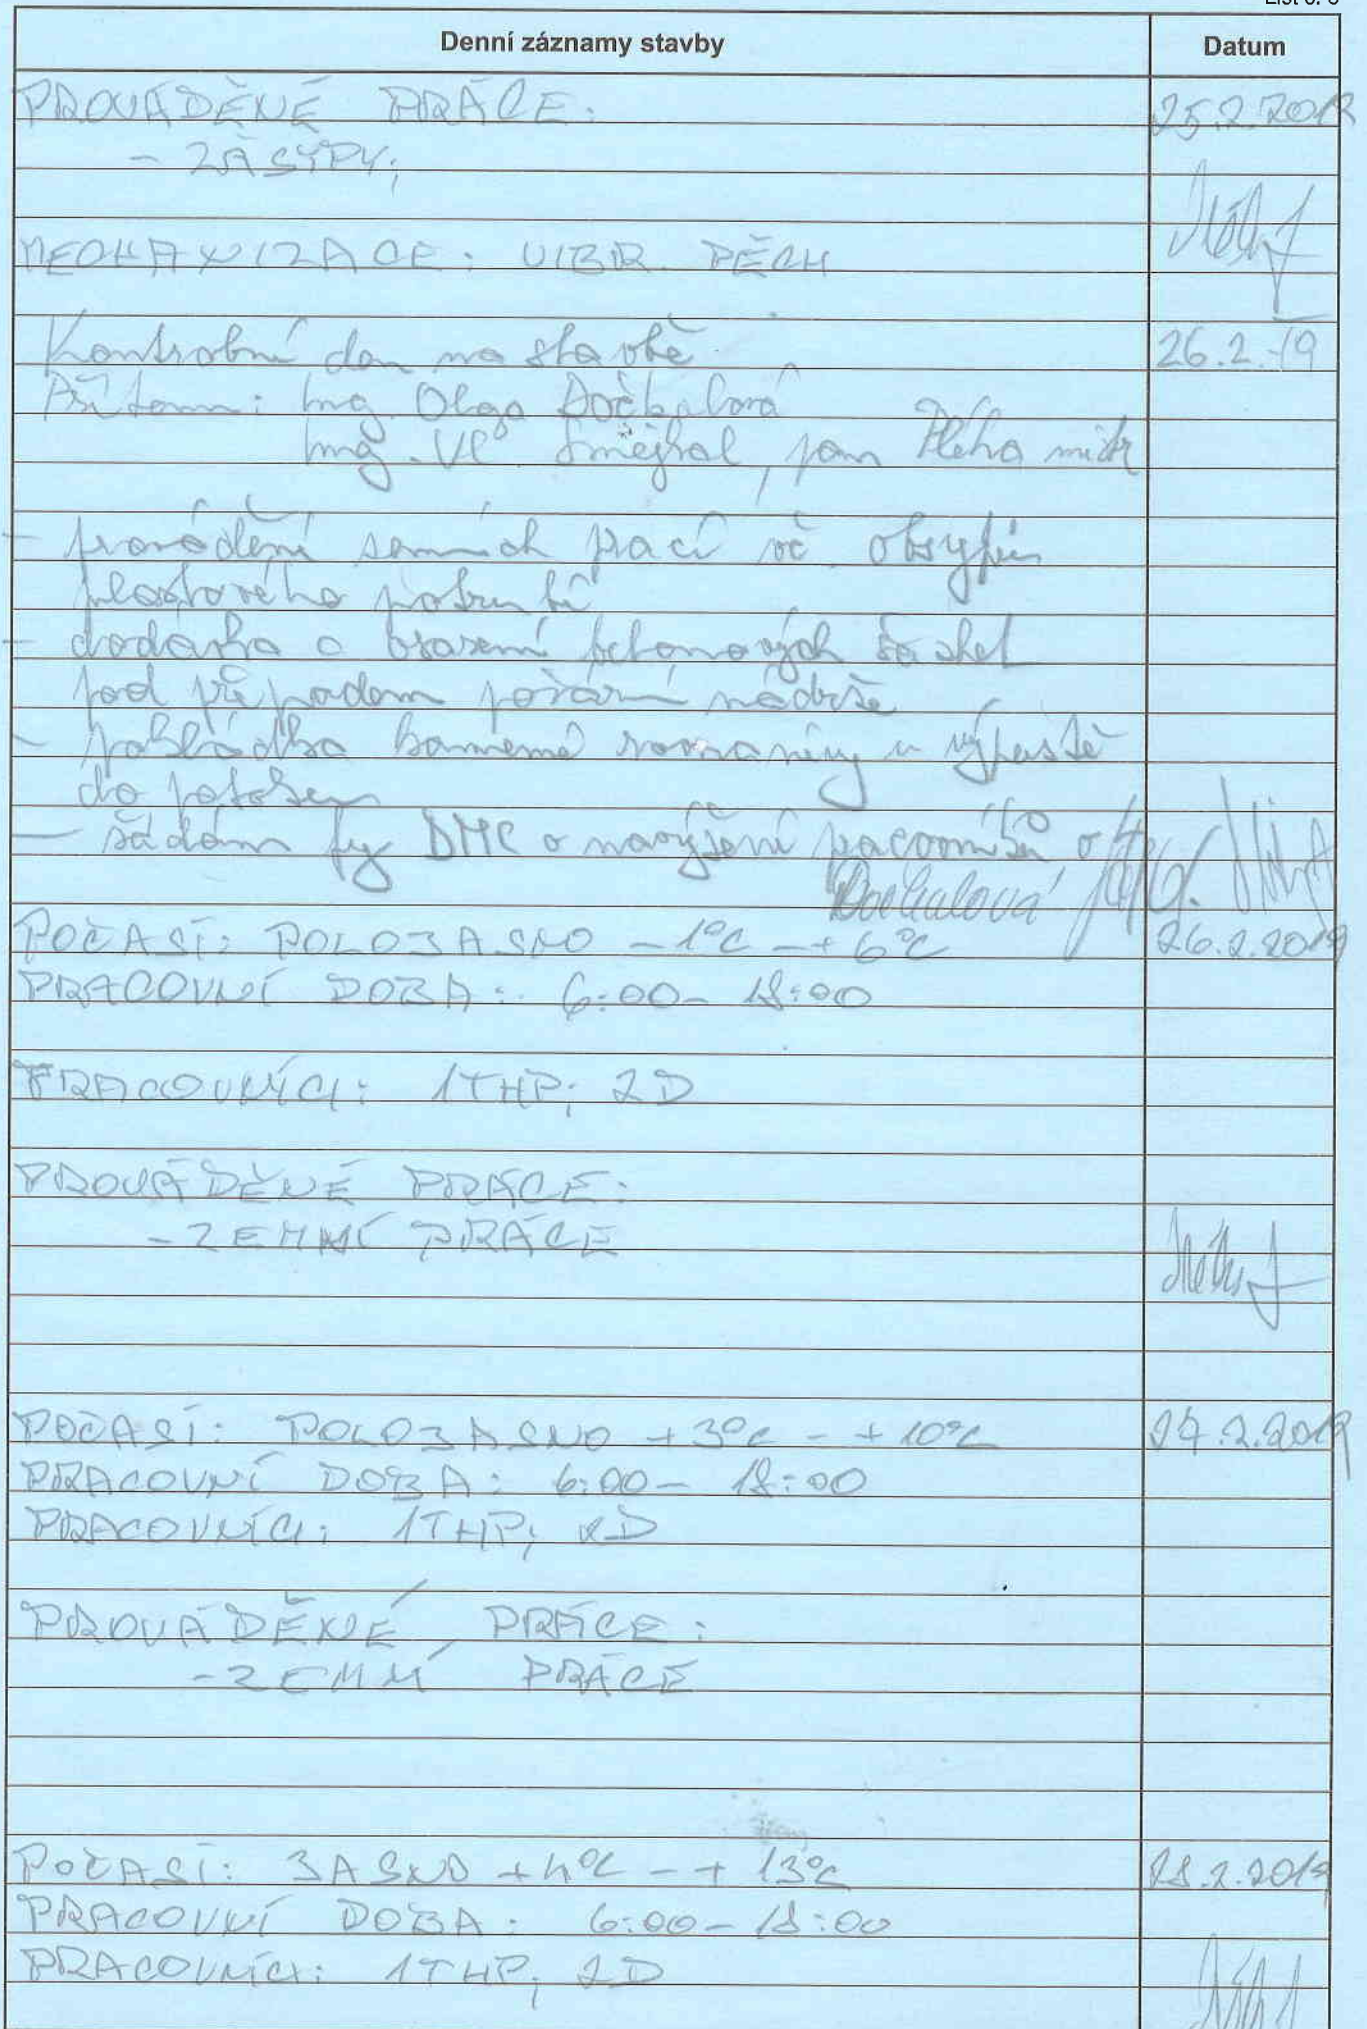 Denní záznamy stavby
Datum
PROVÁDĚNÉ PRÁCE: 25.2.2019
- ZÁSYPY;
MECHANIZACE: VIBR. PĚCH
Kontrolní den na stavbě 26.2.19
Přítomni: Ing. Olga Dočkalová
Ing. Vl. Smejkal, pan Pléha mistr
- provádění zemních prací vč. obsypů
plastového potrubí
- dodávka a osazení betonových
pod přepadem požární nádrže
- pokládka kamenné rovnaniny u výpustě
do potoka
- žádám fy DMC o navýšení pracovníků o
Dočkalová
POČASÍ: POLOJASNO -1°C - +6°C 26.2.2019
PRACOVNÍ DOBA: 6:00 - 18:00
PRACOVNÍCI: 1THP; 2D
PROVÁDĚNÉ PRÁCE:
- ZEMNÍ PRÁCE
POČASÍ: POLOJASNO +3°C - +10°C 27.2.2019
PRACOVNÍ DOBA: 6:00 - 18:00
PRACOVNÍCI: 1THP; 2D
PROVÁDĚNÉ PRÁCE:
- ZEMNÍ PRÁCE
POČASÍ: JASNO +4°C - +13°C 28.2.2019
PRACOVNÍ DOBA: 6:00 - 18:00
PRACOVNÍCI: 1THP; 2D